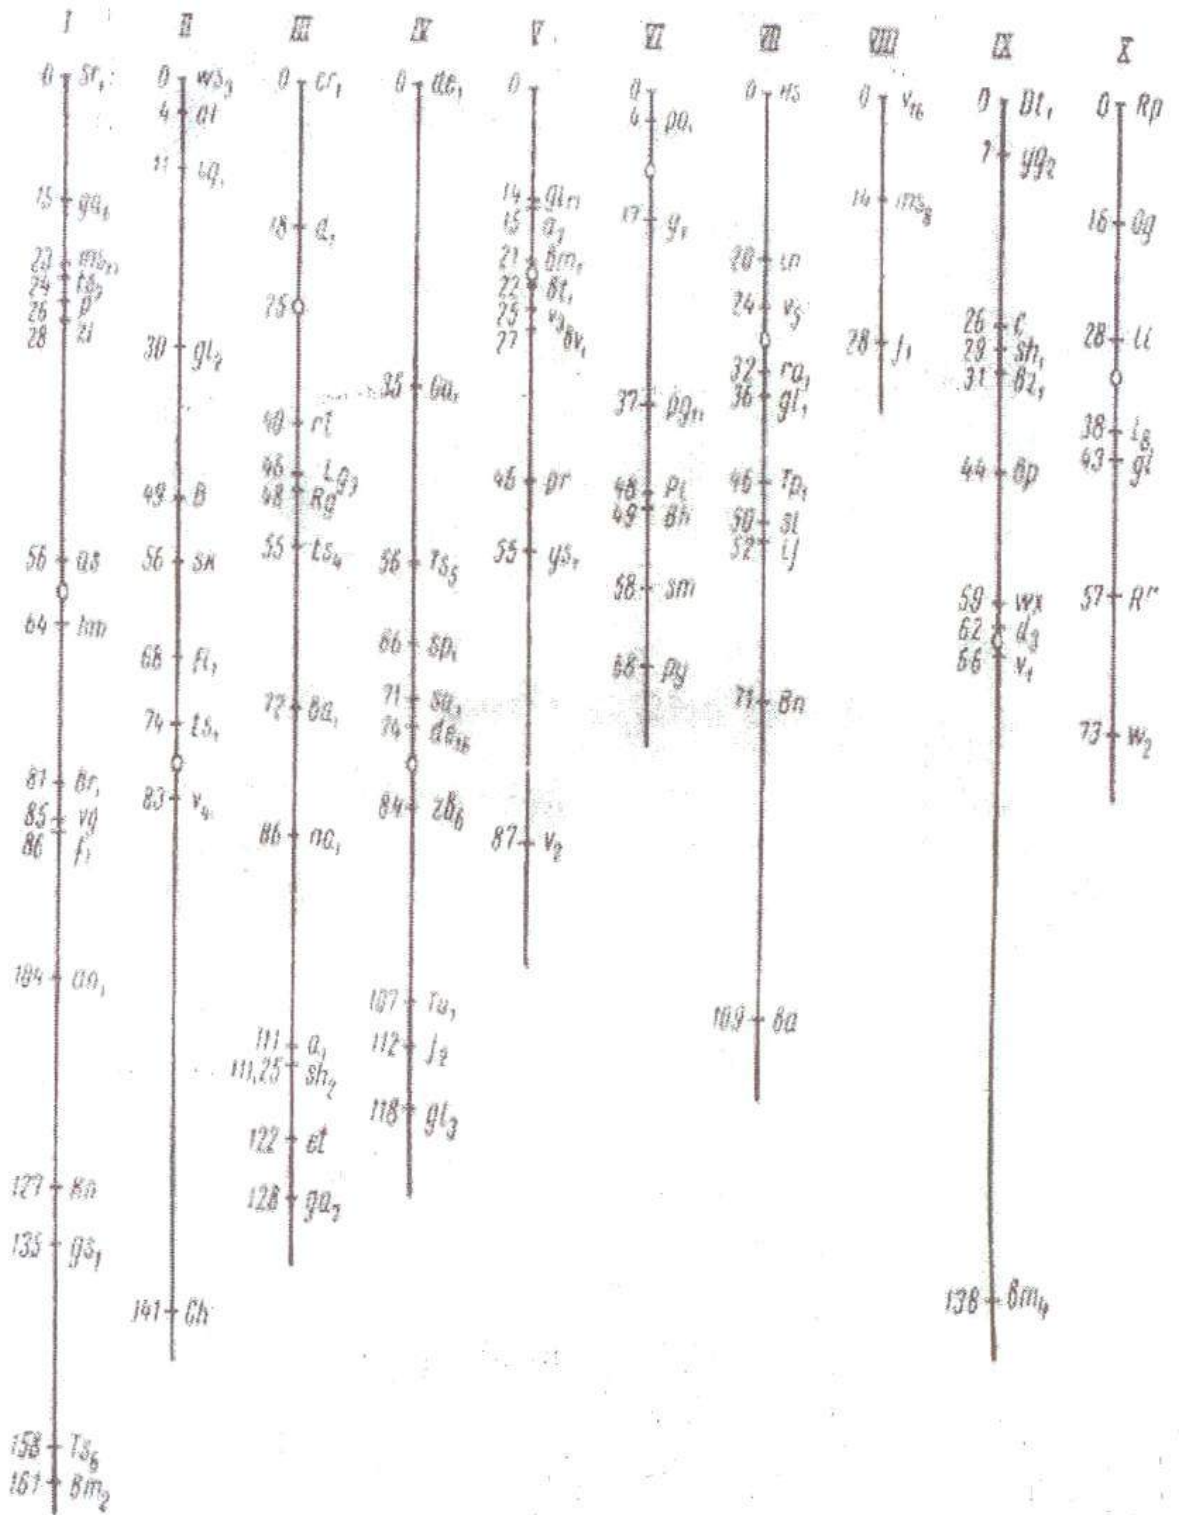 I II III IV V VI VII VIII IX X
0 sr₁
15 ga₆
23
24
26 p
28 zl
56 as
64
81 Br₁
85 vg
86 f₁
104 an₁
127 Kn
135 gs₁
158 Ts₆
161 Bm₂
0 ws₃
4 al
11 Lg₁
30 gl₂
49 B
56 sk
68 Fl₁
74 ts₁
83 v₄
141 Ch
0 cr₁
18 d₁
26
40 rt
46 Lg₃
48 Rg
55 ts₄
72 Ba₁
86 na₁
111 a₁
111,25 sh₂
122 et
128 ga₇
0 de₁
35 Ga₁
56 Ts₅
66 sp₁
71 su₁
74 de₁₆
84 zb₆
107 Tu₁
112 j₂
118 gl₃
0
14 gl₁₇
15 a₂
21 Bm₁
22 Bt₁
25 v₃
27 Bv₁
46 pr
55 ys₁
87 v₂
0
4 po₁
17 y₁
37 pg₁₁
48 Pl
49 Bh
58 sm
68 py
0 Hs
20 in
24 v₅
32 ra₁
36 gl₁
46 Tp₁
50 sl
52 ij
71 Bn
109 ba
0 v₁₆
14 ms₈
28 j₁
0 Dt₁
7 yg₂
26 C
29 sh₁
31 Bz₁
44 Bp
59 wx
62 d₃
66 v₁
138 Bm₄
0 Rp
16 Og
28 li
38 l₈
43 gl
57 Rʳ
73 w₂